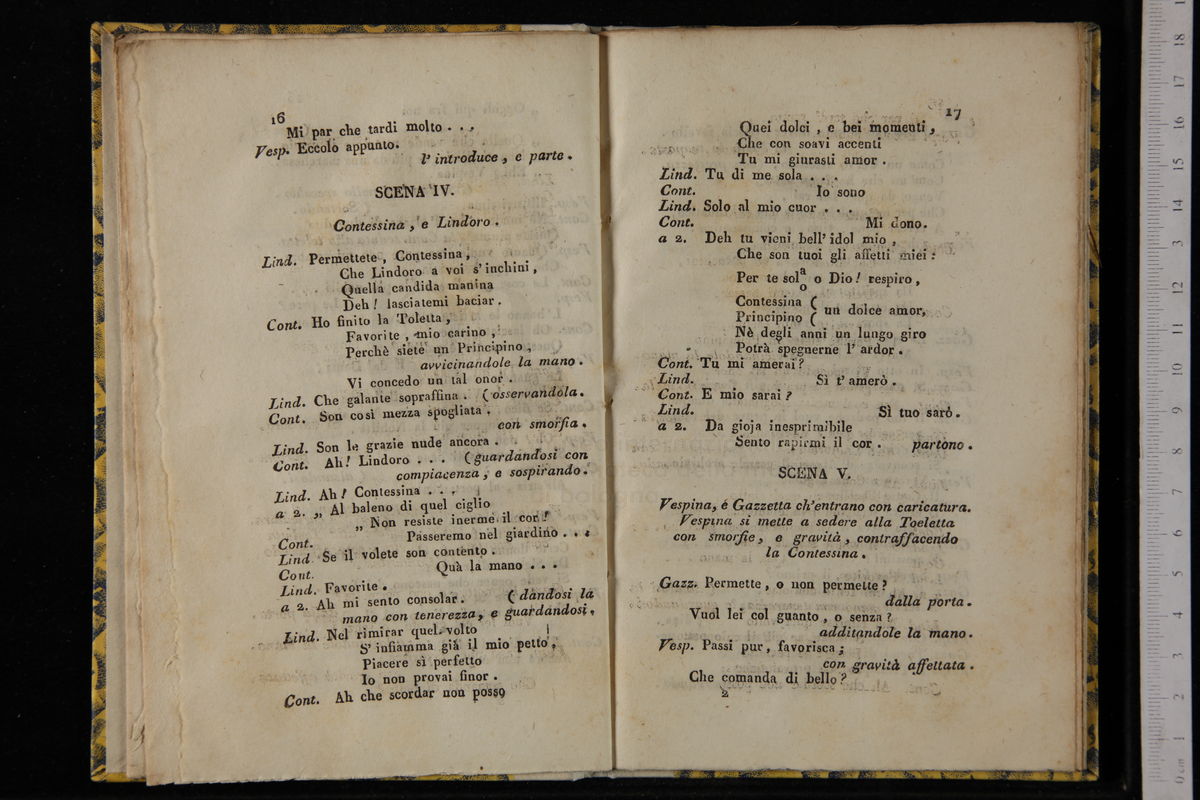 16
Mi par che tardi molto . . .
Vesp. Eccolo appunto.
l' introduce, e parte.
SCENA IV.
Contessina, e Lindoro.
Lind. Permettete, Contessina,
Che Lindoro a voi s' inchini,
Quella candida manina
Deh! lasciatemi baciar.
Cont. Ho finito la Toletta,
Favorite, mio carino,
Perchè siete un Principino,
avvicinandole la mano.
Vi concedo un tal onor.
Lind. Che galante sopraffina. (osservandola.
Cont. Son così mezza spogliata.
con smorfia.
Lind. Son le grazie nude ancora.
Cont. Ah! Lindoro . . . (guardandosi con
compiacenza, e sospirando.
Lind. Ah! Contessina . . .
a 2. „ Al baleno di quel ciglio
„ Non resiste inerme il cor!
Cont. Passeremo nel giardino . . .
Lind. Se il volete son contento.
Cont. Quà la mano . . .
Lind. Favorite.
a 2. Ah mi sento consolar. (dandosi la
mano con tenerezza, e guardandosi.
Lind. Nel rimirar quel volto
S' infiamma già il mio petto,
Piacere sì perfetto
Io non provai finor.
Cont. Ah che scordar non posso
17
Quei dolci, e bei momenti,
Che con soavi accenti
Tu mi giurasti amor.
Lind. Tu di me sola . . .
Cont. Io sono
Lind. Solo al mio cuor . . .
Cont. Mi dono.
a 2. Deh tu vieni bell' idol mio,
Che son tuoi gli affetti miei:
Per te sol a/o o Dio! respiro,
Contessina (
Principino ( un dolce amor,
Nè degli anni un lungo giro
Potrà spegnerne l' ardor.
Cont. Tu mi amerai?
Lind. Sì t' amerò.
Cont. E mio sarai?
Lind. Sì tuo sarò.
a 2. Da gioja inesprimibile
Sento rapirmi il cor. partono.
SCENA V.
Vespina, é Gazzetta ch'entrano con caricatura.
Vespina si mette a sedere alla Toeletta
con smorfie, e gravità, contraffacendo
la Contessina.
Gazz. Permette, o non permette?
dalla porta.
Vuol lei col guanto, o senza?
additandole la mano.
Vesp. Passi pur, favorisca;
con gravità affettata.
Che comanda di bello?
2